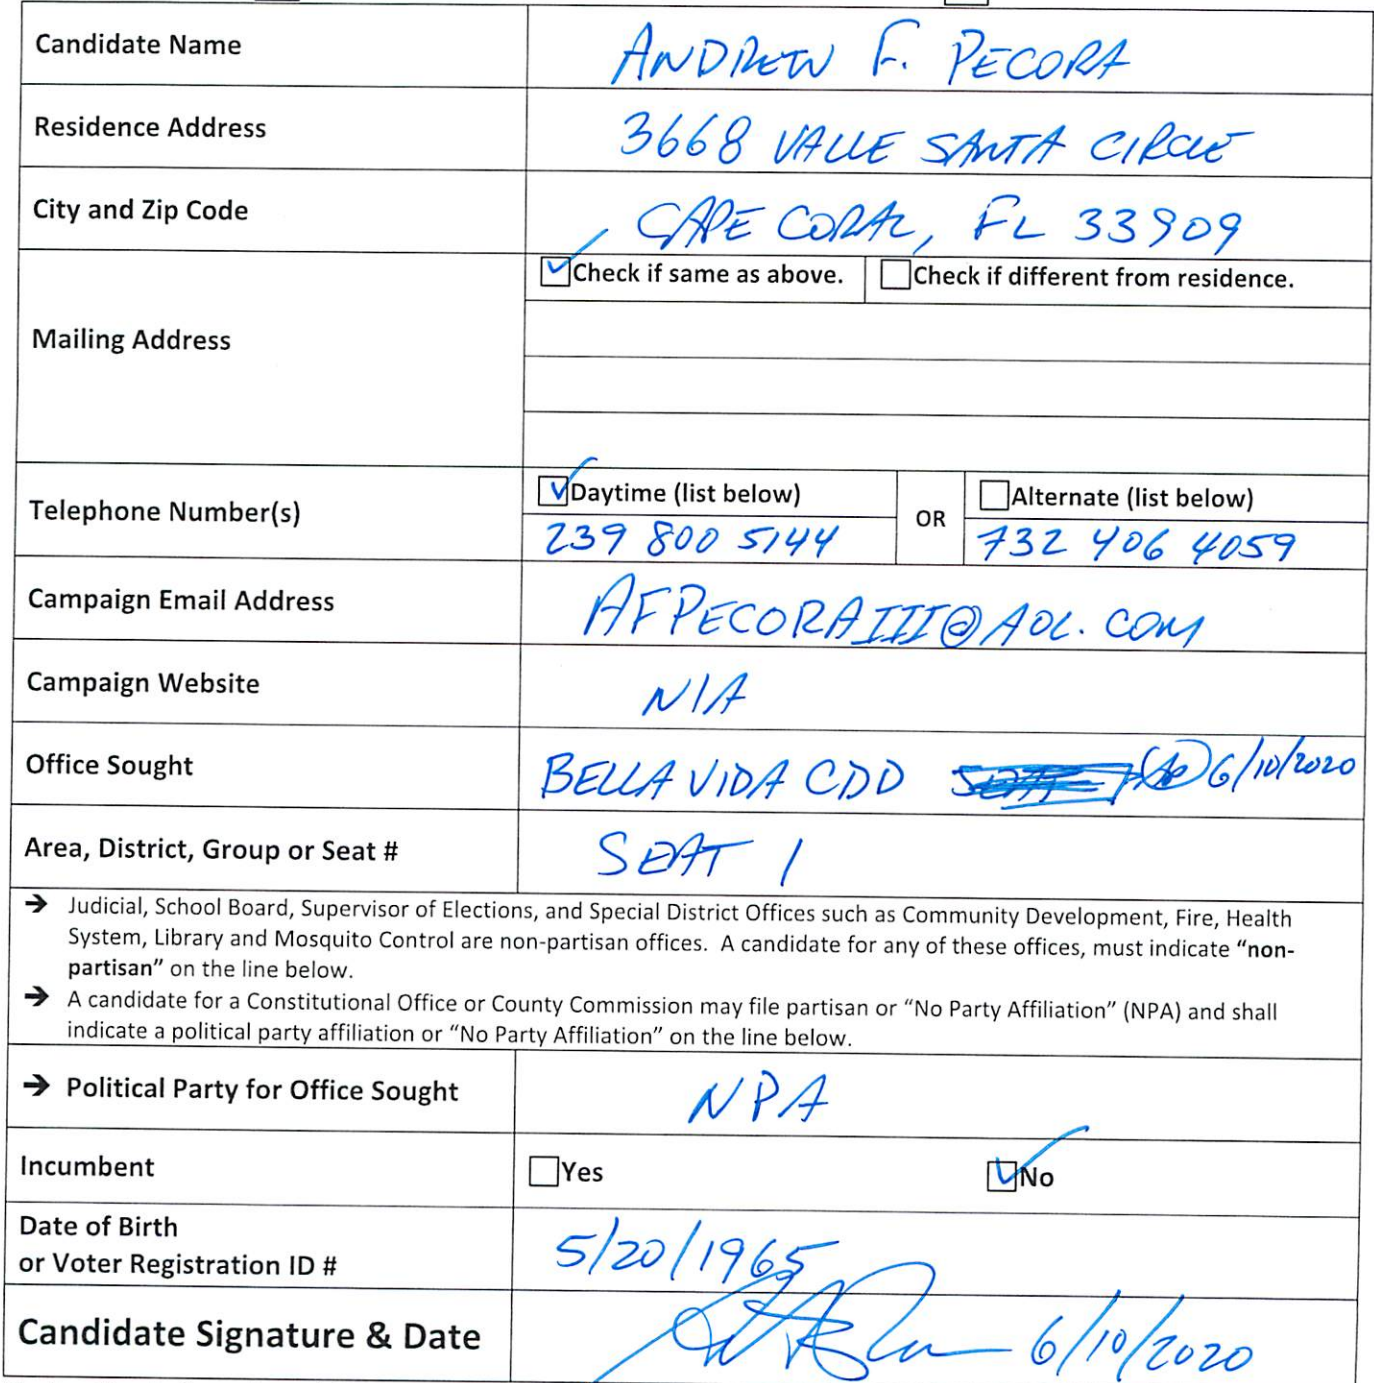 Candidate Name ANDREW F. PECORA
Residence Address 3668 VALLE SANTA CIRCLE
City and Zip Code CAPE CORAL, FL 33909
☑Check if same as above. ☐Check if different from residence.
Mailing Address
☑Daytime (list below) ☐Alternate (list below)
Telephone Number(s) OR
239 800 5144 732 406 4059
Campaign Email Address AFPECORAIII@AOL.COM
Campaign Website N/A
Office Sought BELLA VIDA CDD 6/10/2020
Area, District, Group or Seat # SEAT 1
→ Judicial, School Board, Supervisor of Elections, and Special District Offices such as Community Development, Fire, Health
System, Library and Mosquito Control are non-partisan offices. A candidate for any of these offices, must indicate "non-
partisan" on the line below.
→ A candidate for a Constitutional Office or County Commission may file partisan or "No Party Affiliation" (NPA) and shall
indicate a political party affiliation or "No Party Affiliation" on the line below.
→ Political Party for Office Sought NPA
Incumbent ☐Yes ☑No
Date of Birth
or Voter Registration ID # 5/20/1965
Candidate Signature & Date 6/10/2020